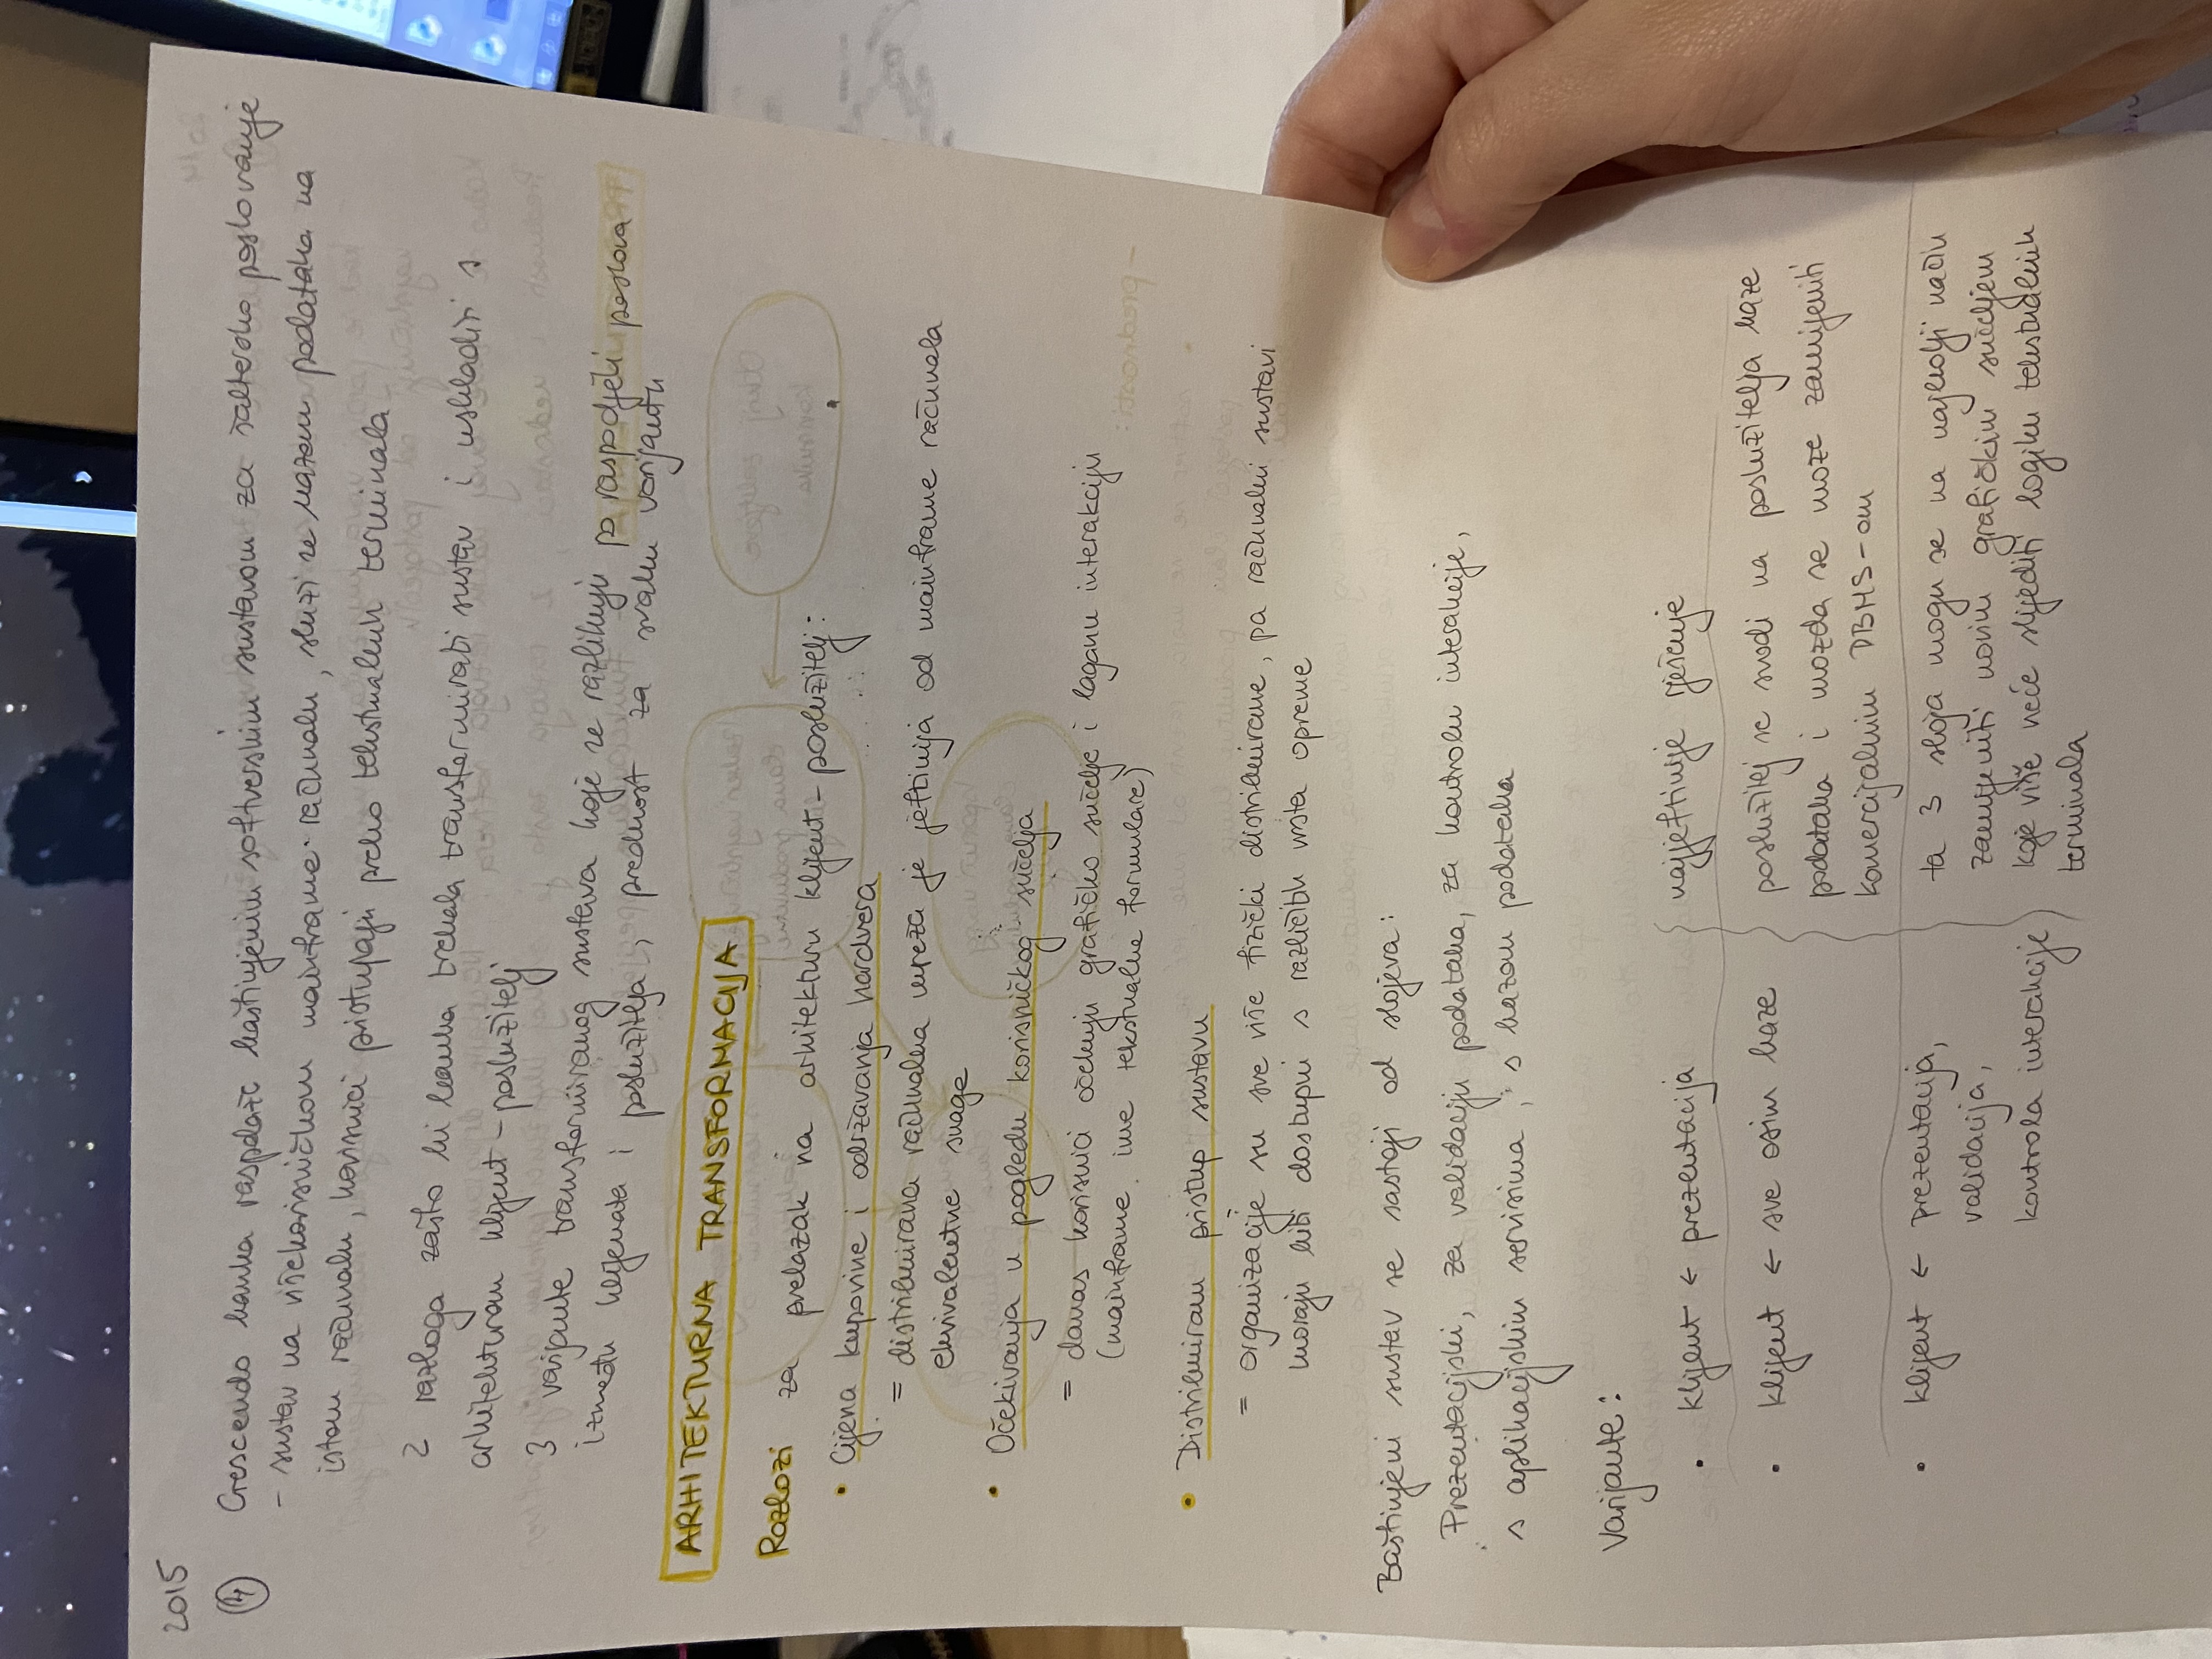 2015
4 Crescendo banka raspolaže baštinjenim softverskim sustavom za šaltersko poslovanje
- sustav na višekorisničkom mainframe računalu, služi se bazom podataka na
istom računalu, korisnici pristupaju preko tekstualnih terminala
2 razloga zašto bi banka trebala transformirati sustav i uskladiti s
arhitekturom klijent-poslužitelj
3 varijante transformiranog sustava koje se razlikuju po raspodjeli poslova
između klijenata i poslužitelja, prednost za svaku varijantu
ARHITEKTURNA TRANSFORMACIJA
Razlozi za prelazak na arhitekturu klijent-poslužitelj:
• Cijena kupovine i održavanja hardvera
= distribuirana računalna mreža je jeftinija od mainframe računala
ekvivalentne snage
• Očekivanja u pogledu korisničkog sučelja
= danas korisnici očekuju grafičko sučelje i laganu interakciju
(mainframe ime tekstualne formulare)
• Distribuiram pristup sustavu
= organizacije su sve više fizički distribuirane, pa računalni sustavi
moraju biti dostupni s različitih vrsta opreme
Baštinjeni sustav se sastoji od slojeva:
Prezentacijski, za validaciju podataka, za kontrolu interakcije,
s aplikacijskim servisima, i s bazom podataka
Varijante:
• klijent ← prezentacija
najjeftinije rješenje
• klijent ← sve osim baze
poslužitelj se svodi na poslužitelja baze
podataka i možda se može zamijeniti
komercijalnim DBMS-om
• klijent ← prezentacija,
validacija,
kontrola interakcije
ta 3 sloja mogu se na najbolji način
zamijeniti novim grafičkim sučeljem
koje više neće slijediti logiku tekstualnih
terminala